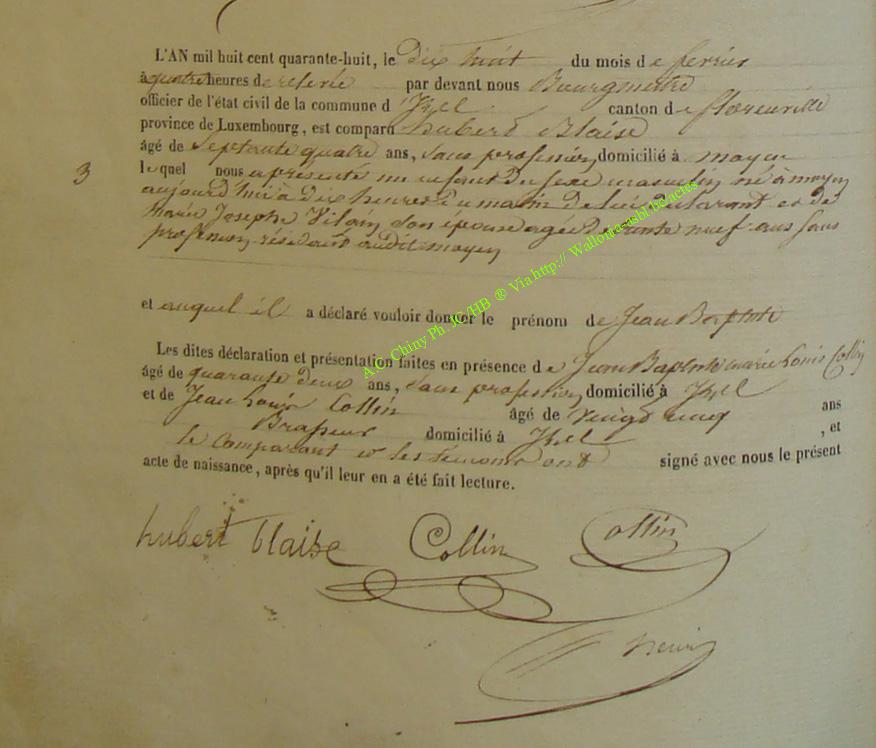 L'AN mil huit cent quarante-huit, le dix huit du mois de fevrier
à quatre heures de relevée par devant nous Bourgmestre
officier de l'état civil de la commune d'Izel canton de florenville
province de Luxembourg, est comparu hubert Blaise
âgé de septante quatre ans, sans profession, domicilié à moyen
3
lequel nous a présenté un enfant du sexe masculin né à moyen
aujourd'hui à dix heures du matin de lui déclarant et de
marie Josephe Vilain son épouse agée de trente neuf ans sans
profession, résidant audit moyen
et auquel il a déclaré vouloir donner le prénom de Jean Baptiste
Les dites déclaration et présentation faites en présence de Jean Baptiste marie Louis Collin
âgé de quarante deux ans, sans profession, domicilié à Izel
et de Jean Louis Collin âgé de vingt cinq ans
Brasseur domicilié à Izel, et
le comparant et les témoins ont signé avec nous le présent
acte de naissance, après qu'il leur en a été fait lecture.
hubert blaise Collin Collin
A.C. Chiny Ph. JC/HB ® Via http:// Wallonia-asbl.be/actes